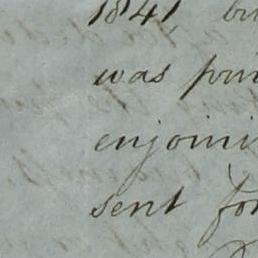 1841 bu
was prin
enjoini
sent for